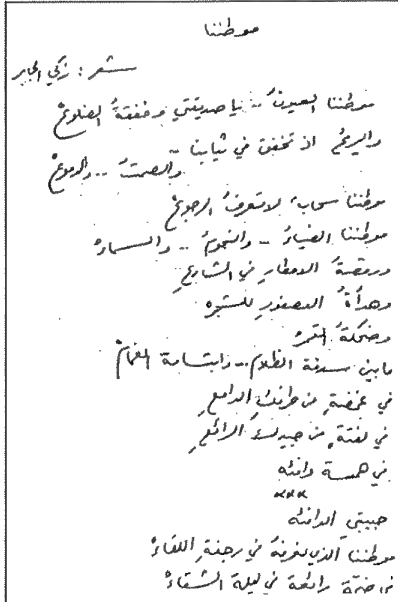 موطننا
شعر : زكي الجابر
موطننا العيونُ .. يا صديقتي وخفقةُ الضلوعْ
والريحُ اذ تخفق في ثيابنا
والصمتُ .. والدموعْ
موطننا سحابةٌ لا تعرفُ الرجوعْ
موطننا الضياءُ .. والنجومُ .. والسماءْ
ورقصةُ الامطارِ في الشارعِ
وهدأةُ العصفورِ
وضحكةُ القمرْ
مابين سدفة الظلام .. وابتسامة الغمامْ
في غمضةٍ من طرفك الدامعِ
في لفتةٍ من جيدك الرائعِ
في همسة دافئه
×××
حبيبتي الدافئه
موطننا الذي نعرفهُ في رجفة اللقاءْ
في ضمّة رائعة في ليلة الشتاءْ